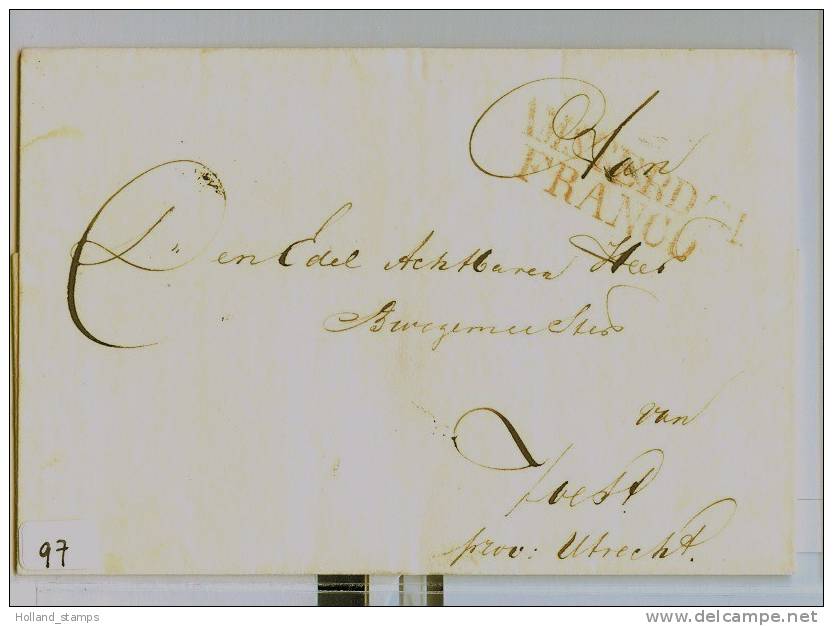 Aan
AMSTERDAM
FRANCO
Den Edel Achtbaren Heer
Burgemeester
van
Soest.
prov: Utrecht.
97
Holland_stamps
delcampe.net